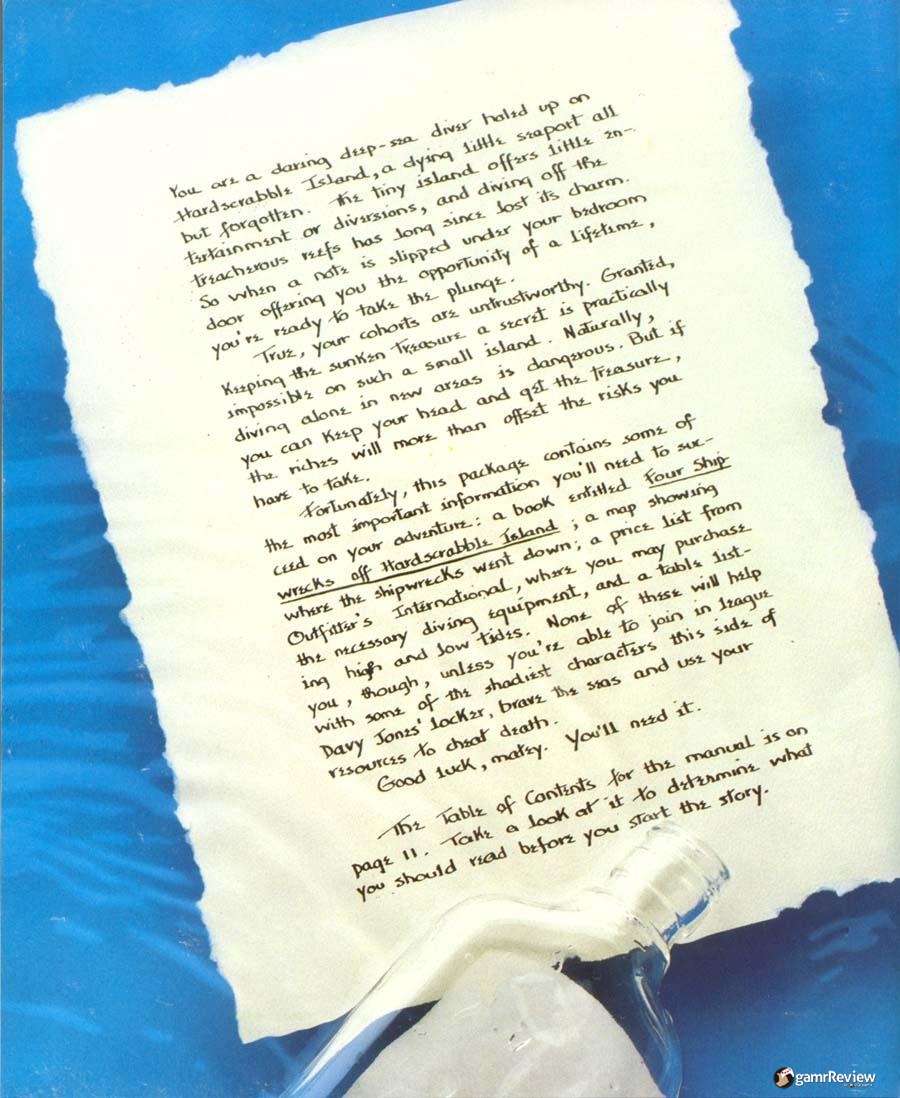 You are a daring deep-sea diver holed up on
Hardscrabble Island, a dying little seaport all
but forgotten. The tiny island offers little en-
tertainment or diversions, and diving off the
treacherous reefs has long since lost its charm.
So when a note is slipped under your bedroom
door offering you the opportunity of a lifetime,
you're ready to take the plunge.
True, your cohorts are untrustworthy. Granted,
Keeping the sunken treasure a secret is practically
impossible on such a small island. Naturally,
diving alone in new areas is dangerous. But if
you can keep your head and get the treasure,
the riches will more than offset the risks you
have to take.
Fortunately, this package contains some of
the most important information you'll need to suc-
ceed on your adventure: a book entitled Four Ship-
wrecks off Hardscrabble Island; a map showing
where the shipwrecks went down; a price list from
Outfitter's International, where you may purchase
the necessary diving equipment, and a table list-
ing high and low tides. None of these will help
you, though, unless you're able to join in league
with some of the shadiest characters this side of
Davy Jones' locker, brave the seas and use your
resources to cheat death.
Good luck, matey. You'll need it.
The Table of Contents for the manual is on
page 11. Take a look at it to determine what
you should read before you start the story.
gamrReview